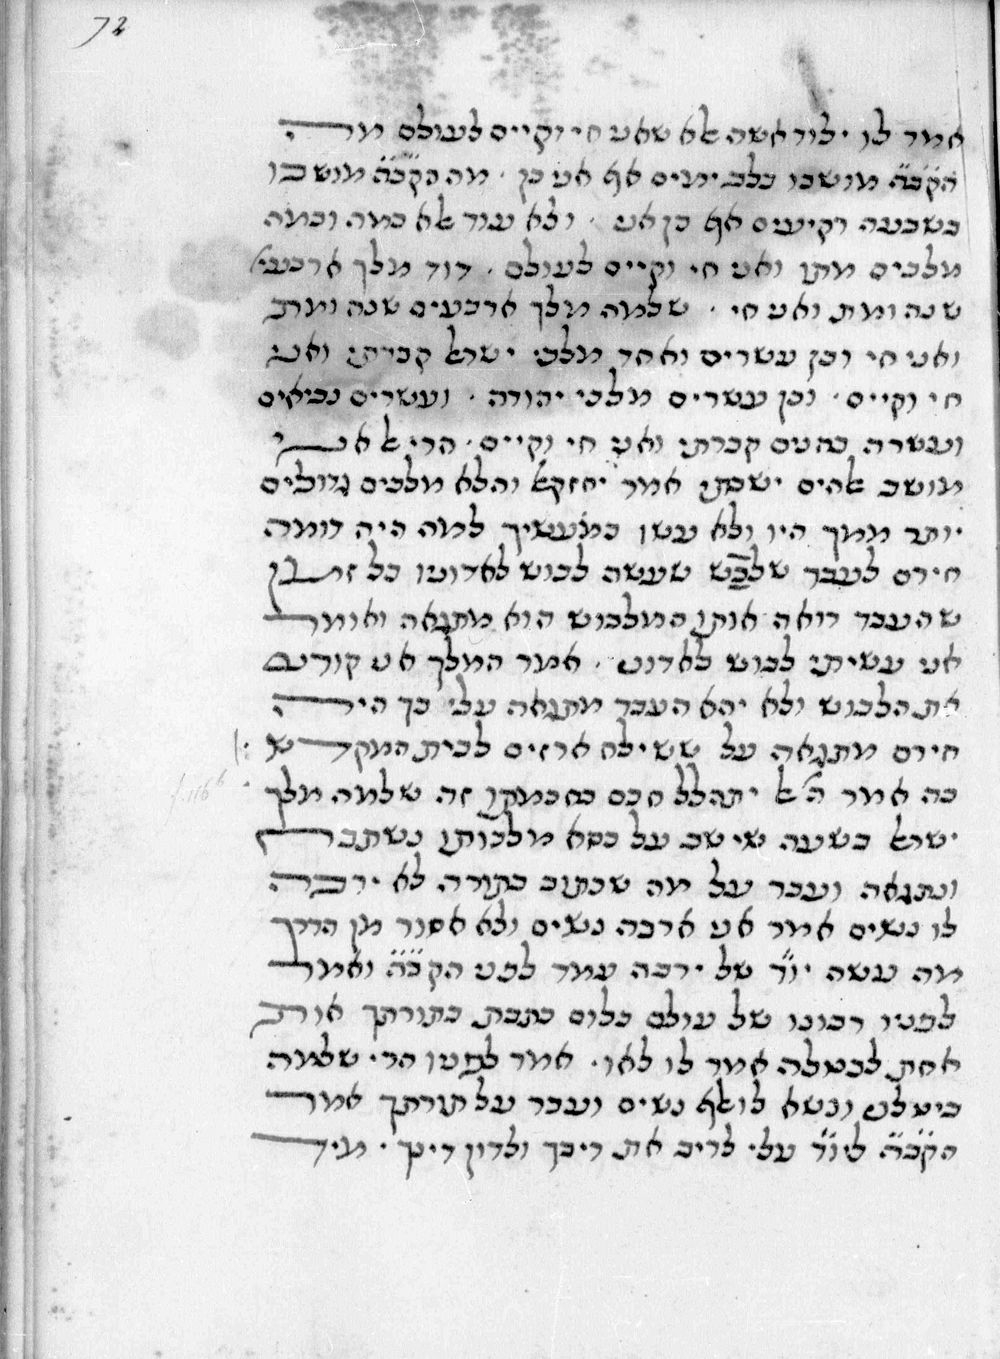 72
אמר לו ילוד אשה לא שאני חי וקיים לעולם מה
הק̇ב̇ה̇ מושבו בלב ימים אף אני כן · מה הק̇ב̇ה̇ מושבו
בשבעה רקיעים אף כן אני · ולא עוד אלא כמה וכמה
מלכים מתו ואני חי וקיים לעולם · דוד מלך ארבעי'
שנה ומת ואני חי · שלמה מלך ארבעים שנה ומת
ואני חי וכן עשרים ואחד מלכי ישראל קברתי ואני
חי וקיים · וכן עשרים מלכי יהודה · ועשרים נביאים
ועשרה כהנים קברתי ואני חי וקיים · הרי אל אני
מושב אלהים ישבתי אמר יחזקאל והלא מלכים גדולים
יותר ממך היו ולא עשו כמעשיך למה היה דומה
חירם לעבד שעשה לבוש לאדוניו כל זמן
שהעבד רואה אותו המלבוש הוא מתגאה ואומר
אני עשיתי לבוש לאדוני · אמר המלך אני קורע
את הלבוש ולא יהא העבד מתגאה עלי כך היה
חירם מתגאה על ששילח ארזים לבית המקדש
כה אמר ה' אל יתהלל חכם בחכמתו זה שלמה מלך
f. 116 b
ישראל בשעה שישב על כסא מלכותו נשתבח
ונתגאה ועבר על מה שכתוב בתורה לא ירבה
לו נשים אמר אני ארבה נשים ולא אסור מן הדרך
מה עשה יו̇ד̇ של ירבה עמד לפני הק̇ב̇ה̇ ואמר
לפניו רבונו של עולם כלום כתבת בתורתך אות
אחת לבטלה אמר לו לאו · אמר לפניו הרי שלמה
ביטלני ונשא לו אלף נשים ועבר על תורתך אמר
הק̇ב̇ה̇ ליו̇ד̇ עלי לריב את ריבך ולדון דינך · מיד